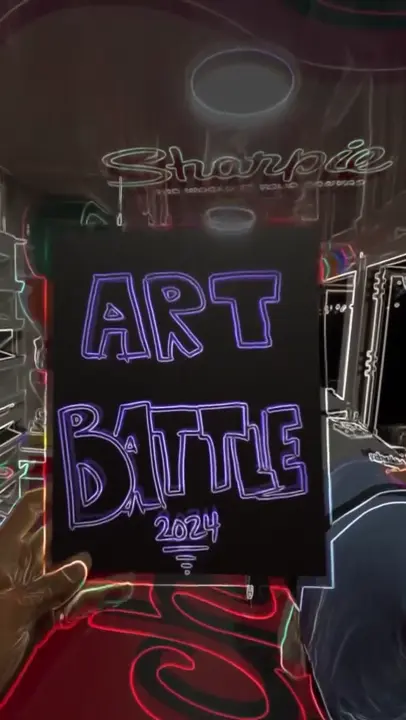 Sharpie
ART
BATTLE
2024